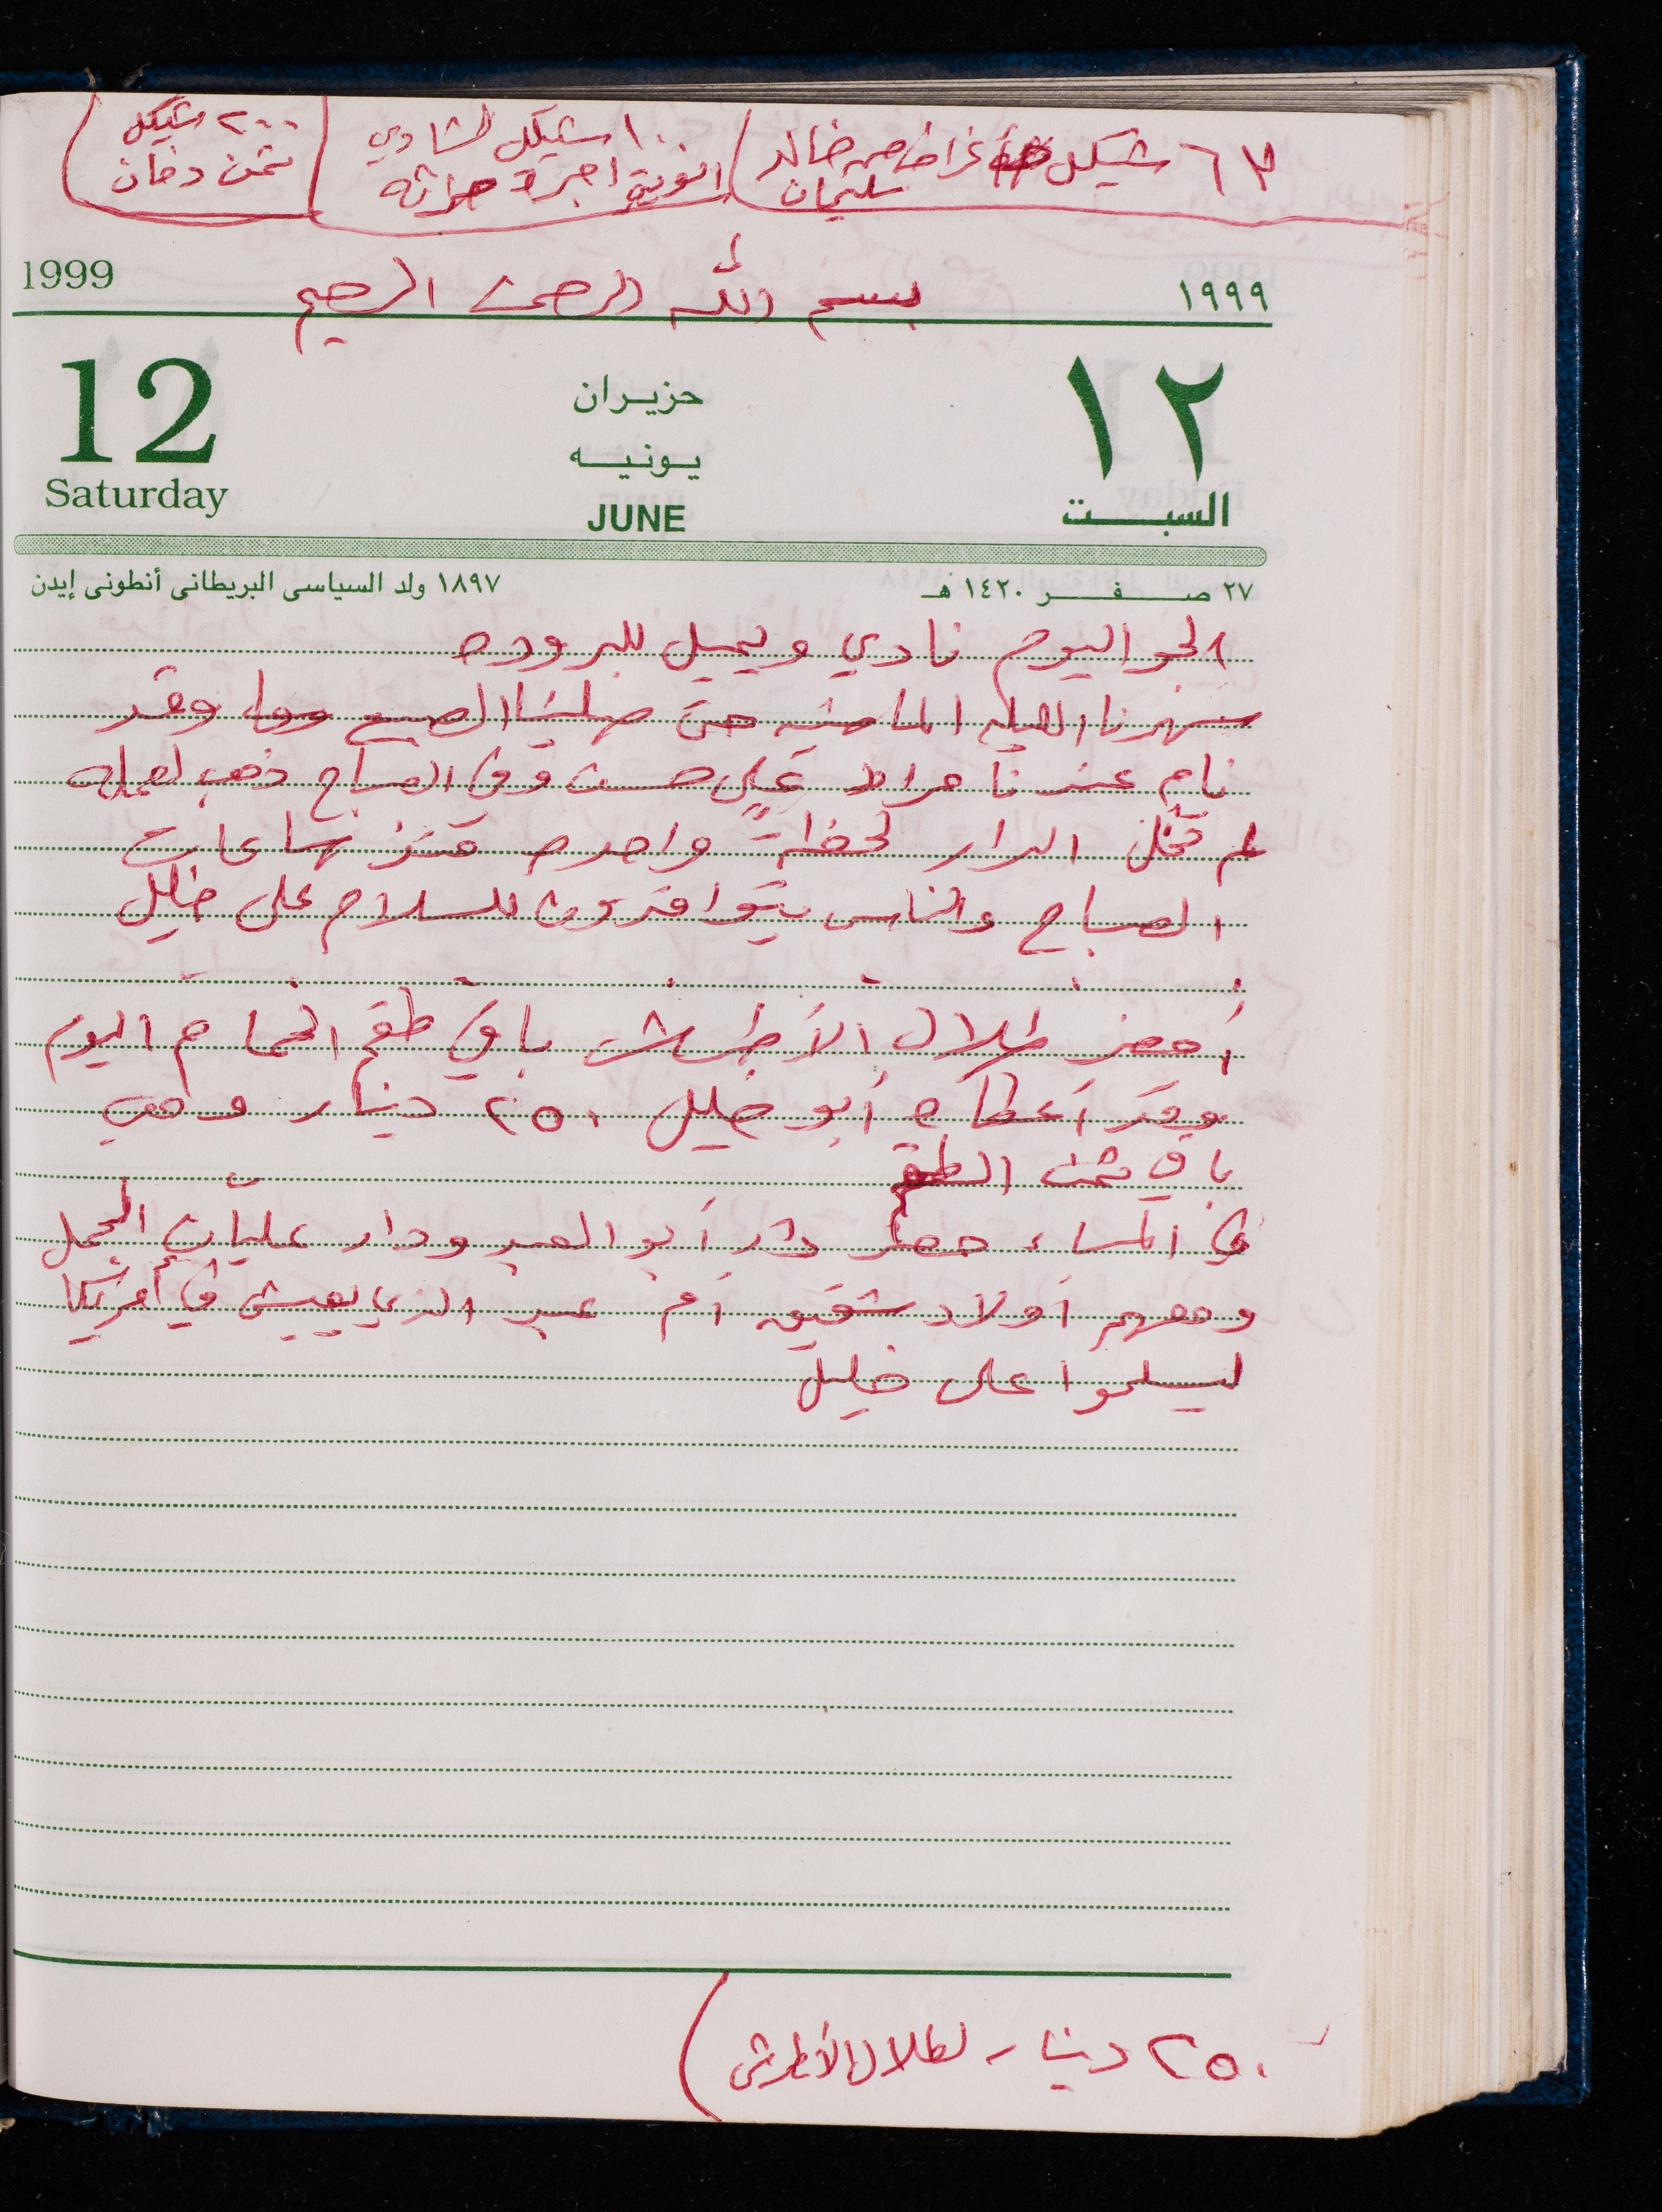 ٦٧ شيكل أغراض من خالد سليمان
١٠٠ شيكل لشادي
اجرة حراثه
٢٠٠ شيكل
ثمن دخان
بسم الله الرحمن الرحيم
1999
١٩٩٩
12
حزيران
١٢
يونيه
Saturday
JUNE
السبت
٢٧ صفر ١٤٢٠ هـ
١٨٩٧ ولد السياسى البريطانى أنطونى إيدن
الجو اليوم نادي ويميل للبروده
سهرنا الليله الماضيه حتى صلينا الصبح وقد
نام عندنا مراد علي حسن وفي الصباح ذهب لعمله
لم تخل الدار لحظةً واحده منذ ساعات
الصباح والناس يتوافدون للسلام على خليل
أحضر طلال الأطرش باقي طقم الحمام اليوم
وقد أعطاه أبو خليل ٢٥٠ دينار وهي
باقي ثمن الطقم
في المساء حضر دار أبو العبد ودار عليان الجمل
ومعهم أولاد شقيق أم عبد الذي يعيش في أمريكا
ليسلموا على خليل
٢٥٠ دينار لطلال الأطرش